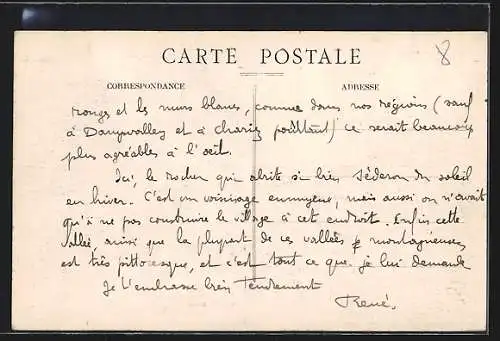 8
CARTE POSTALE
CORRESPONDANCE
ADRESSE
rouges et les murs blancs, comme dans nos régions (sauf
à et à pourtant) ce serait beaucoup
plus agréables à l'oeil.
Ici, le rocher qui abrite si bien Séderon du soleil
en hiver. C'est un voisinage ennuyeux, mais aussi on n'avait
qu'à ne pas construire le village à cet endroit. Enfin cette
vallée, ainsi que la plupart de ces vallées montagneuses
est très pittoresque, et c'est tout ce que je lui demande
Je t'embrasse bien tendrement
René.